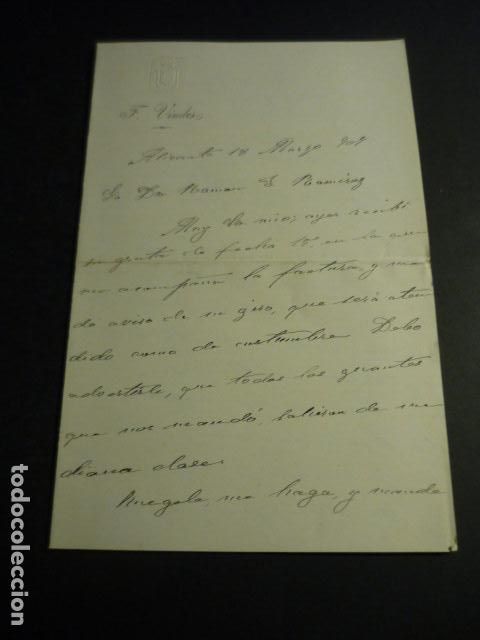 F. Vindes
Alicante 18 Marzo 907
Sr Dn Ramon S Ramirez
Muy Sr mio; ayer recibi
su grata de fecha 16, en la que
me acompaña la factura, y me
da aviso de su giro, que será aten
dido como de costumbre. Debo
advertirle, que todos los guantes
que nos mandó, salieron de me
diana clase.
Ruegole, me haga, y mande
todocoleccion.net